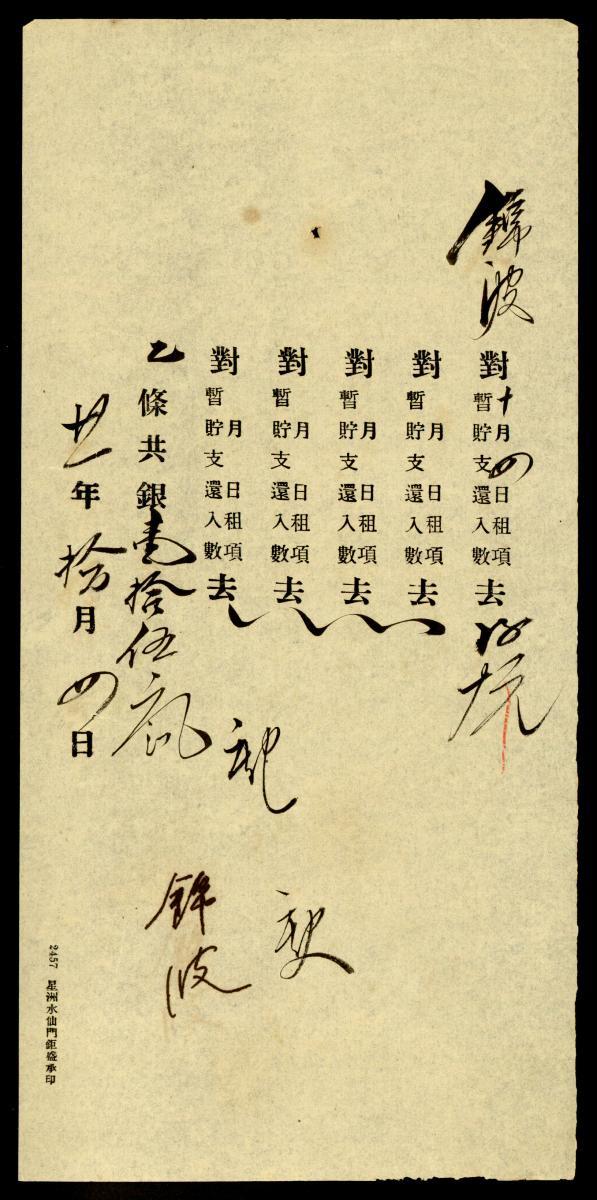 錦波
對暫貯支還入數
十月四日租項
去
對暫貯支還入數
月日租項
去
對暫貯支還入數
月日租項
去
對暫貯支還入數
月日租項
去
對暫貯支還入數
月日租項
去
乙條共銀壹拾伍
廿一年拾月四日
錦波
2457 星洲水仙門鉅盛承印